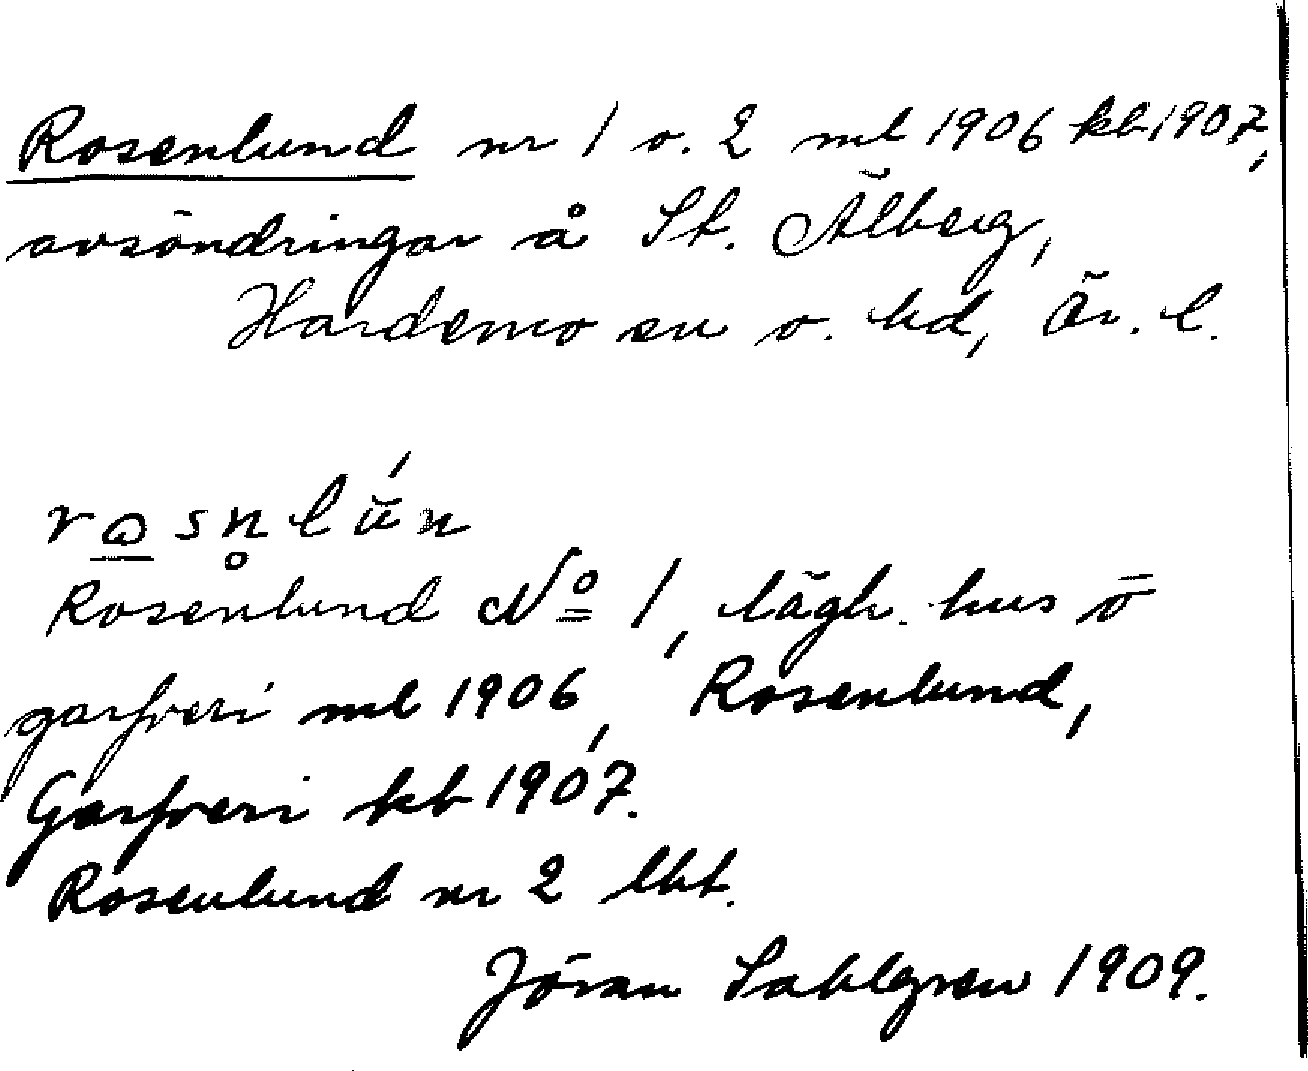 Rosenlund nr 1 o. 2 ml 1906 kb 1907,
avsöndringar å St. Älberg,
Hardemo sn o. hd, Ör. l.
Rosenlund No 1, lägh. hus ō
garfveri ml 1906, Rosenlund,
Garfveri kb 1907.
Rosenlund nr 2 lht.
Jöran Sahlgren 1909.